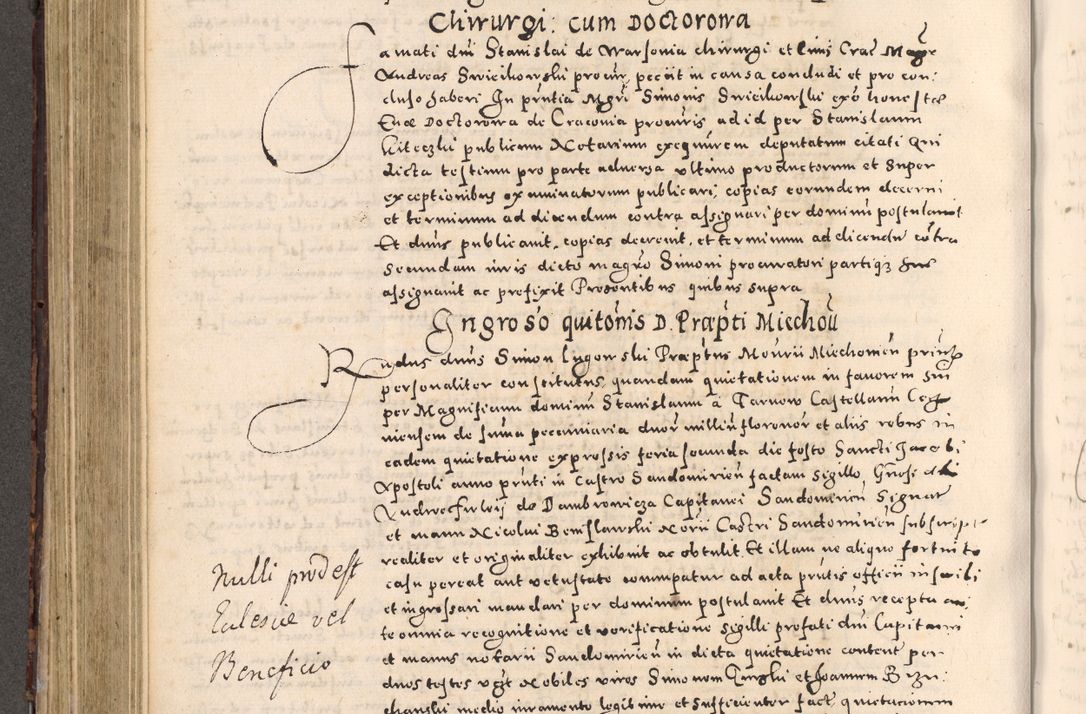 Chirurgi: cum Doctorowa
Famati dni Stanislai de Warsovia chirurgi et civis Crac Magr
Andreas Swiecikowski procur, peciit in causa concludi et pro con:
cluso haberi In pntia Mgri Simonis Swiecikowski exo honestæ
Evæ Doctorowa de Cracovia procuris ad id per Stanislaum
Kiteczki publicum Notarium exequirem deputatum citati Qui
dicta testium pro parte adversa ultimo productorum et super
exceptionibus examinatorum publicari, copias eorundem decerni
et terminum ad dicendum contra assignari per dominum postulavit
Et dnus publicavit, copias decrevit, et terminum ad dicendu cotra
secundum iuris dicto magro Simoni procuratori partiq sue
assignavit ac prefixit Presentibus quibus supra
Ingrosso quitonis D. Præpti Miechov
Rndus dnus Simon Lugowski Præptus Monrii Miechovien princip
personaliter constitutus, quandam quietationem in favorem sui
per Magnificum dominum Stanislaum à Tarnow Castellanum
mensem de suma pecuniaria duor millium florenor et aliis rebus in
eadem quietatione expressis feria secunda die festo Sancti Jacobi
Apostoli anno pnti in Castro Sandomirien factam sigillo, Gnosi dni
de Dambrowicza Capitanei Sandomirien Signat
et manu Nicolai Notrii Castri Sandomirien subscript
realiter et originaliter exhibuit ac obtulit. Et illam ne aliquo fortuito
casu pereat aut vetustate conrumpatur ad acta pntis officii inscribi
et ingrossari mandari per dominum postulavit Et dnus recepta an,
te omnia recognitione et verificatione sigilli prefati dni Capitanei
et manus notarii Sandomirien in dicta quietatione content per
duos testes Nobiles viros Simonem et Joannem
medio iuramento legitime et sufficienter fact quietationem
Nulli prodest
Eclesiæ vel
Beneficio